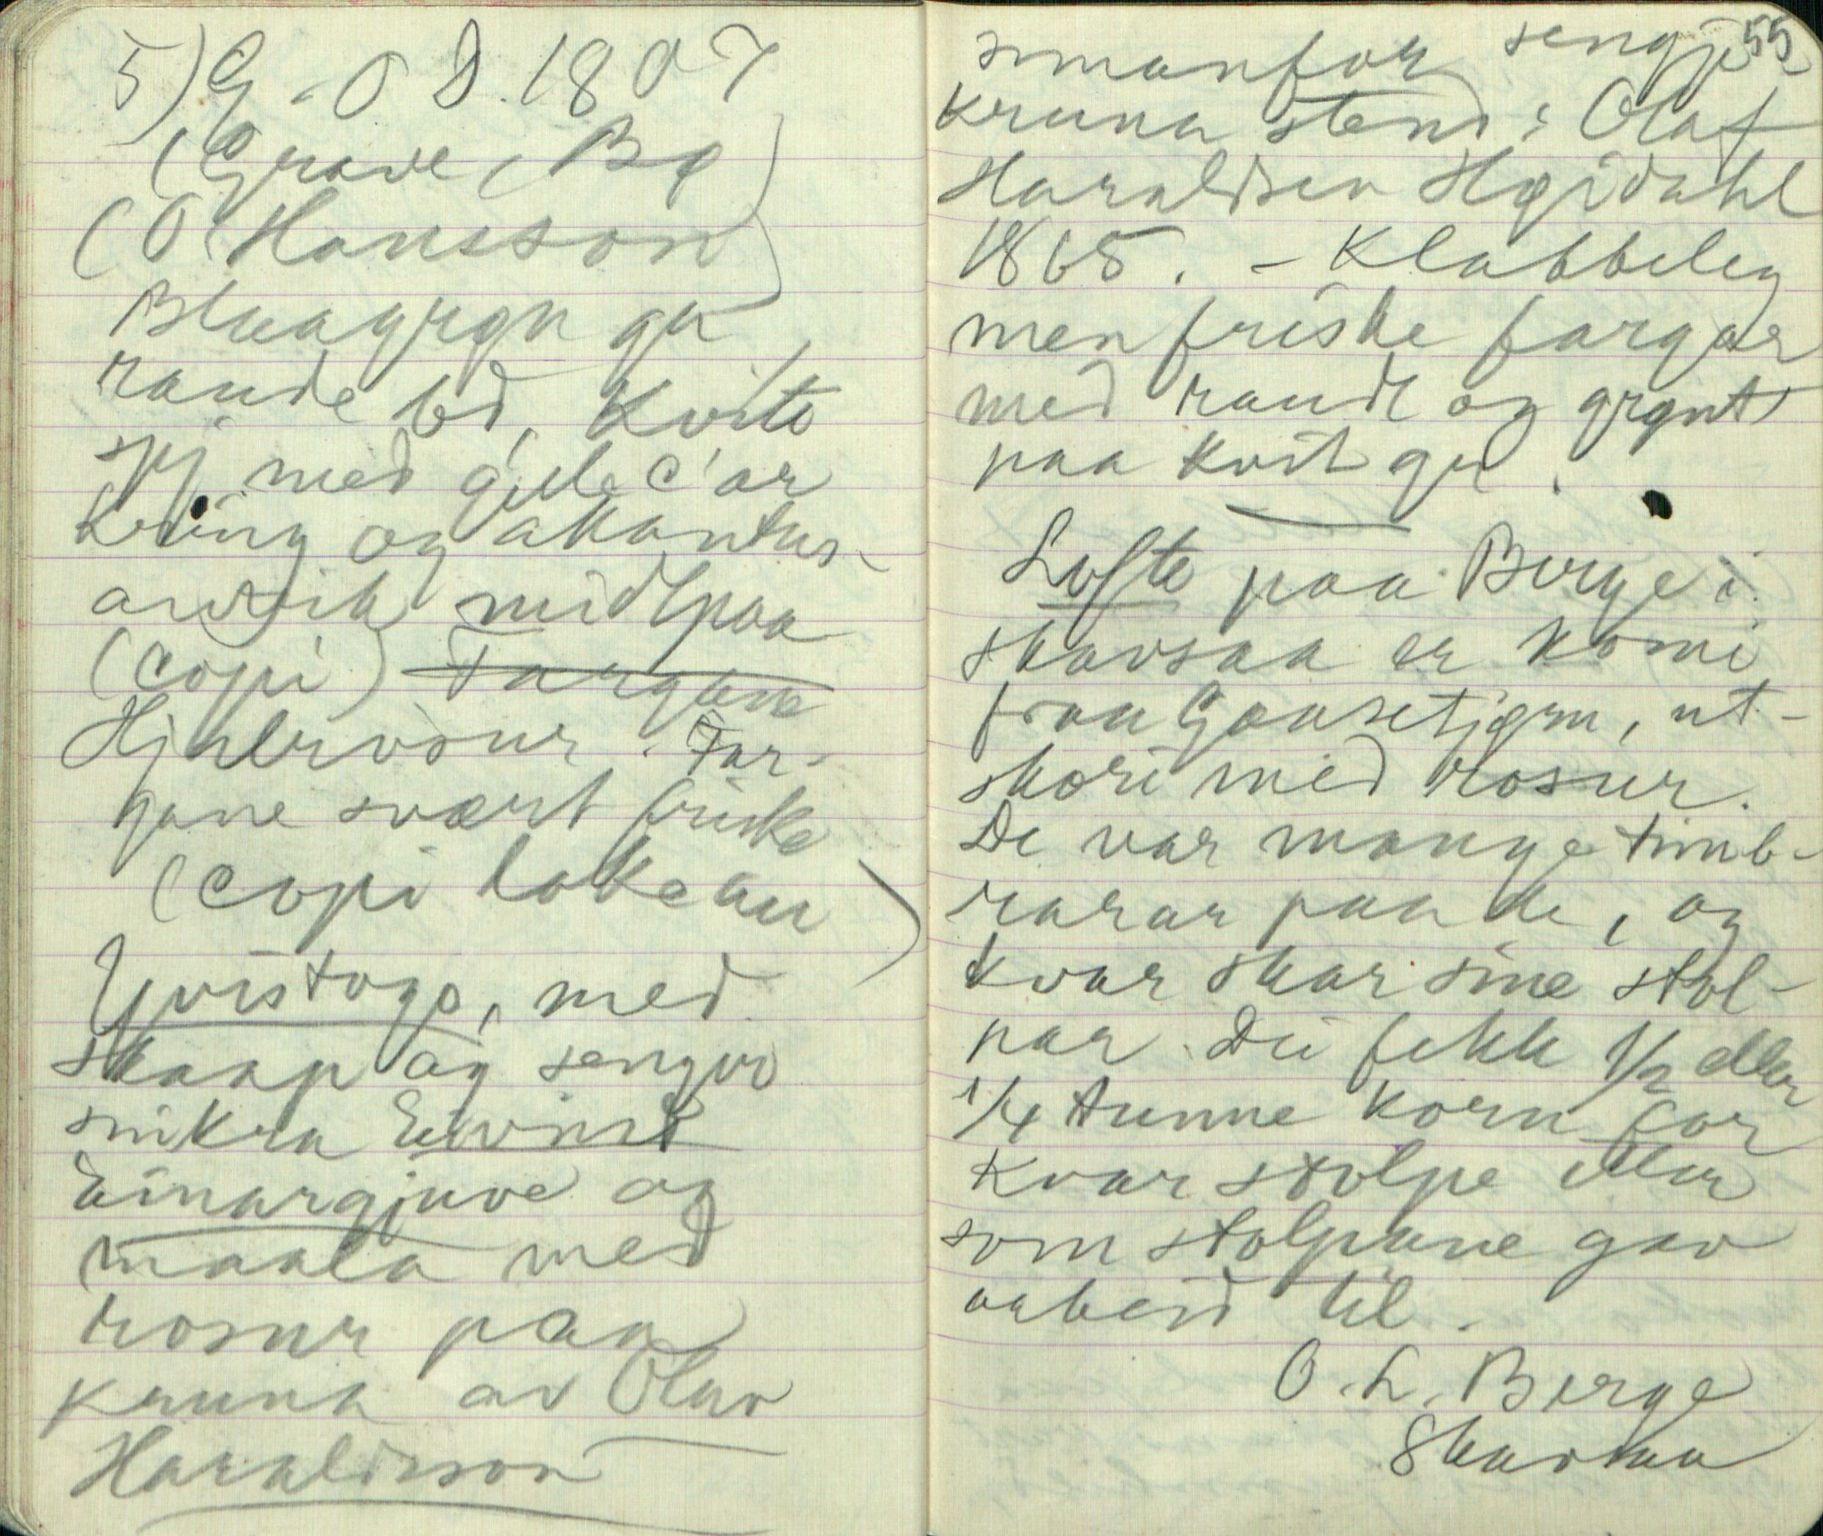 5) G. O D. 1807
(Grave, Bø)
(O. Hansson)
Blaagrøn gr
raude bd, kvite
spj med gule c'ar
kring og akantus-
midtpaa
(copi) Fargane
Hjulrosur. Far-
gane svært friske
(copi
Yvistogo, med
skaap og sengjo
snikra Eivind
Einargjuve og
maala med
rosur paa
kruna av Olav
Haraldsson
55
innanfor sengje
kruna stend: Olaf
Haraldsen Høidahl
1865. - Klabbeleg
men friske fargar
med raudt og grønt
paa kvit gr.
Lofte paa Berge i
Skavsaa er komi
fraa Gaasetjønn, ut-
skori med rosur.
De var mange timb-
rarar paa de, og
kvar skar sine stol-
par. Dei fekk 1/2 eller
1/4 tunne korn for
kvar stolpe etter
som stolpane gav
arbeid til.
O. L. Berge
Skavsaa